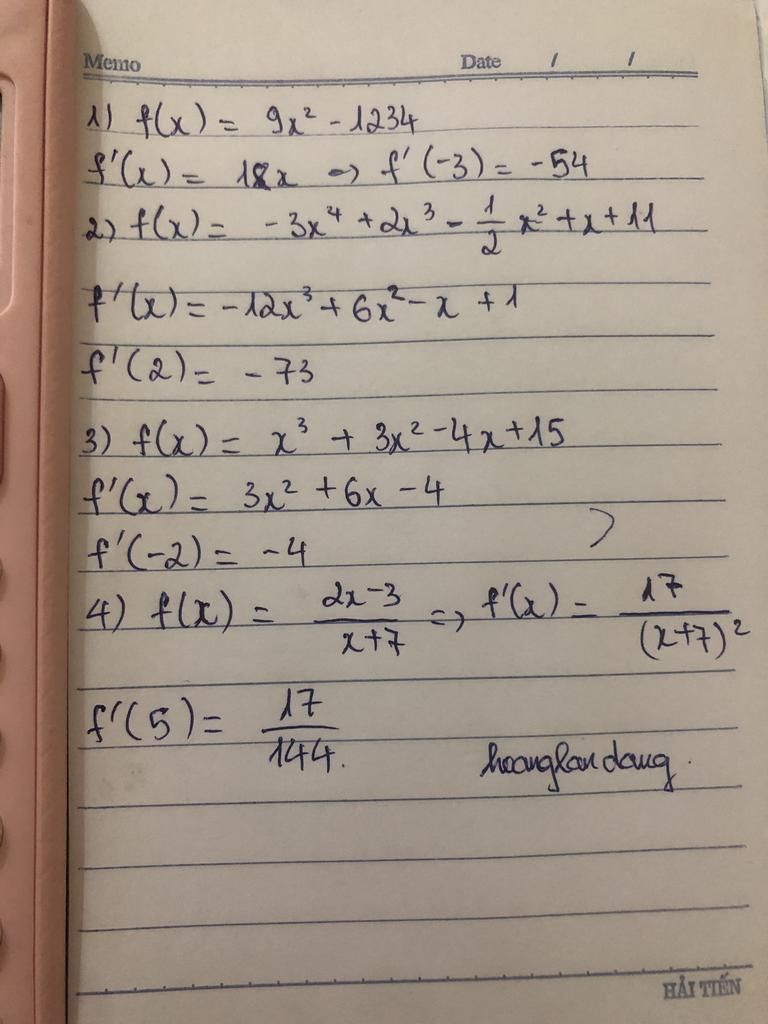 Memo Date / /
1) f(x) = 9x² - 1234
f'(x) = 18x → f'(-3) = -54
2) f(x) = -3x⁴ + 2x³ - 1/2 x² + x + 11
f'(x) = -12x³ + 6x² - x + 1
f'(2) = -73
3) f(x) = x³ + 3x² - 4x + 15
f'(x) = 3x² + 6x - 4
f'(-2) = -4
4) f(x) = 2x-3/x+7 => f'(x) = 17/(x+7)²
f'(5) = 17/144.
hoanglandang.
HẢI TIẾN